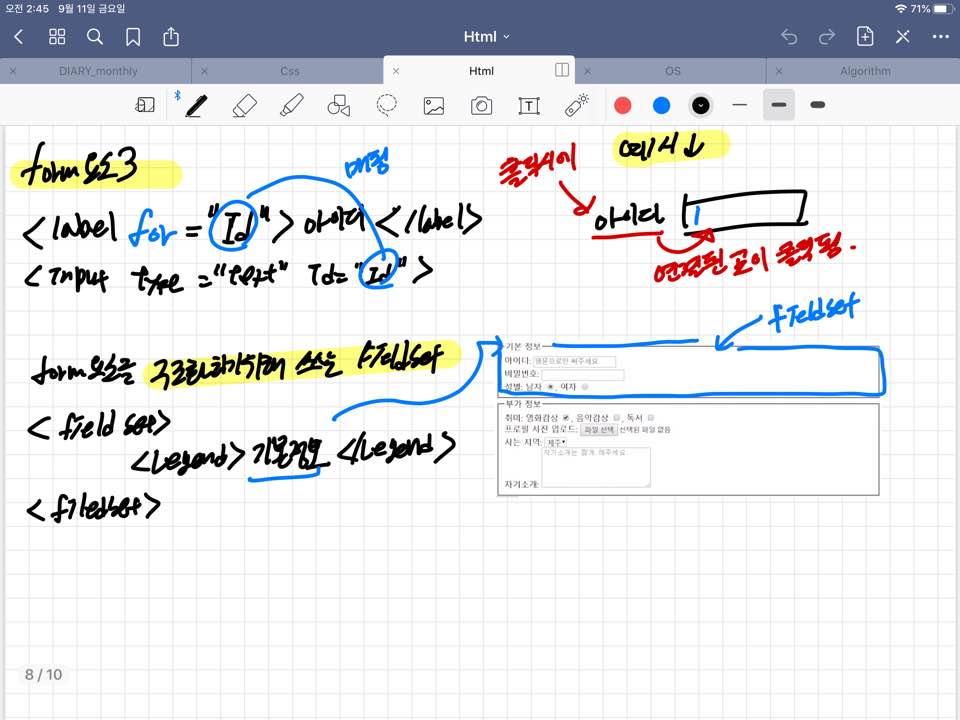 오전 2:45 9월 11일 금요일
71%
Html
DIARY_monthly
Css
Html
OS
Algorithm
form 요소3
매핑
<label for="Id">아이디</label>
<input type="text" Id="Id">
예시↓
클릭시에
아이디
연결된 곳이 클릭됨.
form요소를 구조화하기위해 쓰는 Fieldset
<field set>
<legend>기본정보</legend>
<fieldset>
fieldset
기본 정보
아이디: 영문으로만 써주세요
비밀번호:
성별: 남자 , 여자
부가 정보
취미: 영화감상 , 음악감상 , 독서
프로필 사진 업로드: 파일 선택 선택된 파일 없음
사는 지역: 제주
자기소개는 짧게 해주세요
자기소개:
8 / 10